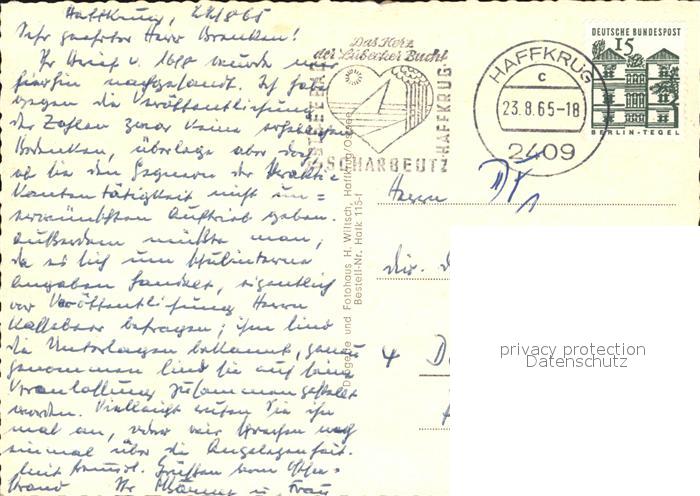 Haffkrug, 22/8 65
Sehr geehrter Herr
Ihr Brief v. 16/8 wurde mir
hierhin nachgesandt. Ich habe
gegen die Veröffentlichung
der Zahlen zwar keine
Bedenken, überlege aber, dass
wir den Gegnern der
tätigkeit nicht un=
erwünschten Auftrieb geben.
Außerdem müßte man,
da es sich um Schulinterne
Angaben handelt, eigentlich
vor Veröffentlichung Herrn
befragen; ihm sind
die Unterlagen bekannt, genau
genommen sind sie auf seine
Veranlassung zusammengestellt
worden. Vielleicht rufen Sie ihn
mal an, oder wir sprechen noch
einmal über die Angelegenheit.
Mit freundl. Grüßen vom Ostsee=
strand Ihr u. Frau
Das Herz
der Lübecker Bucht
HAFFKRUG
SCHARBEUTZ
HAFFKRUG
c
23.8.65-18
2409
DEUTSCHE BUNDESPOST
15
BERLIN-TEGEL
Drogerie und Fotohaus H. Wiltsch, Haffkrug/Ostsee
Bestell-Nr. Hafk 115-f
Herrn
Dir.
privacy protection
Datenschutz